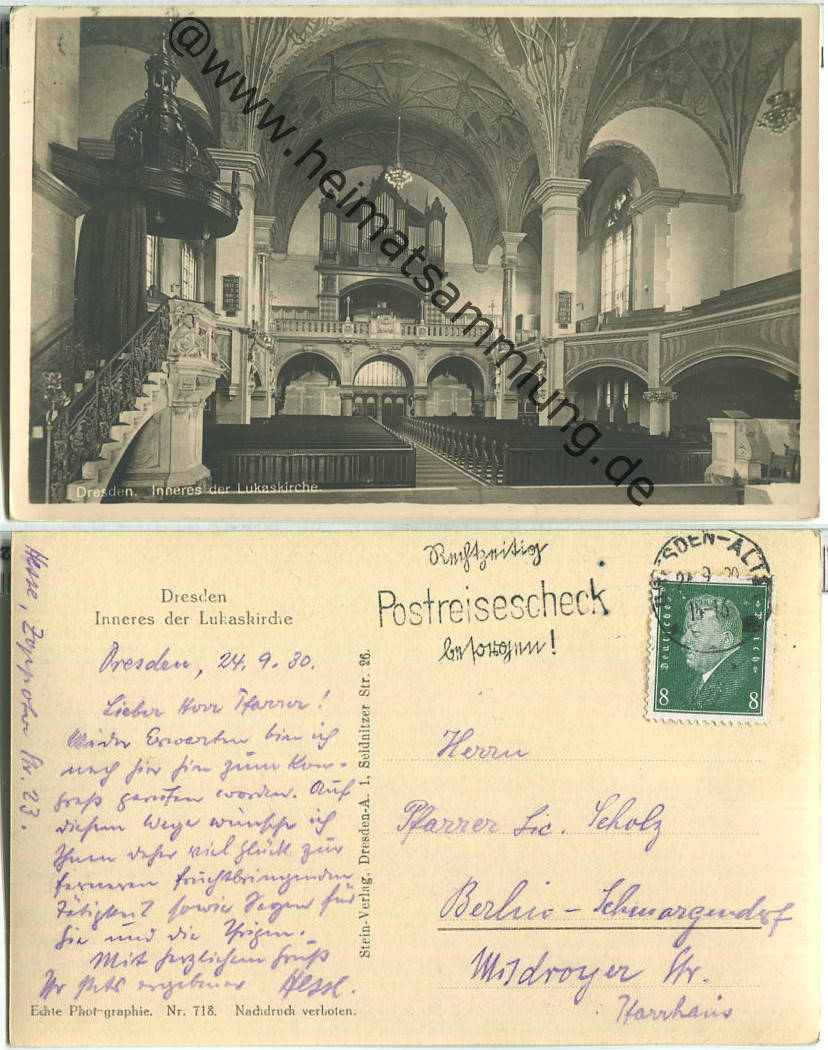 @www.heimatsammlung.de
Dresden. Inneres der Lukaskirche.
Dresden
Inneres der Lukaskirche
Rechtzeitig
Postreisescheck
besorgen!
DRESDEN-ALTST
24.9.30
15-16
Deutsches Reich
8 8
Dresden, 24.9.30.
Lieber Herr Pfarrer!
Wider Erwarten bin ich
nach hier hin zum Kon-
greß gerufen worden. Auf
diesem Wege wünsche ich
Ihnen daher viel Glück zur
ferneren fruchtbringenden
Tätigkeit sowie Segen für
Sie und die Ihrigen.
Mit herzlichem Gruß
Ihr stets ergebener Hesse.
Hesse, Str. 23.
Stein-Verlag, Dresden-A. 1, Seidnitzer Str. 26.
Herrn
Pfarrer Lic. Scholz
Berlin-Schmargendorf
Misdroyer Str.
Pfarrhaus
Echte Photographie. Nr. 718. Nachdruck verboten.